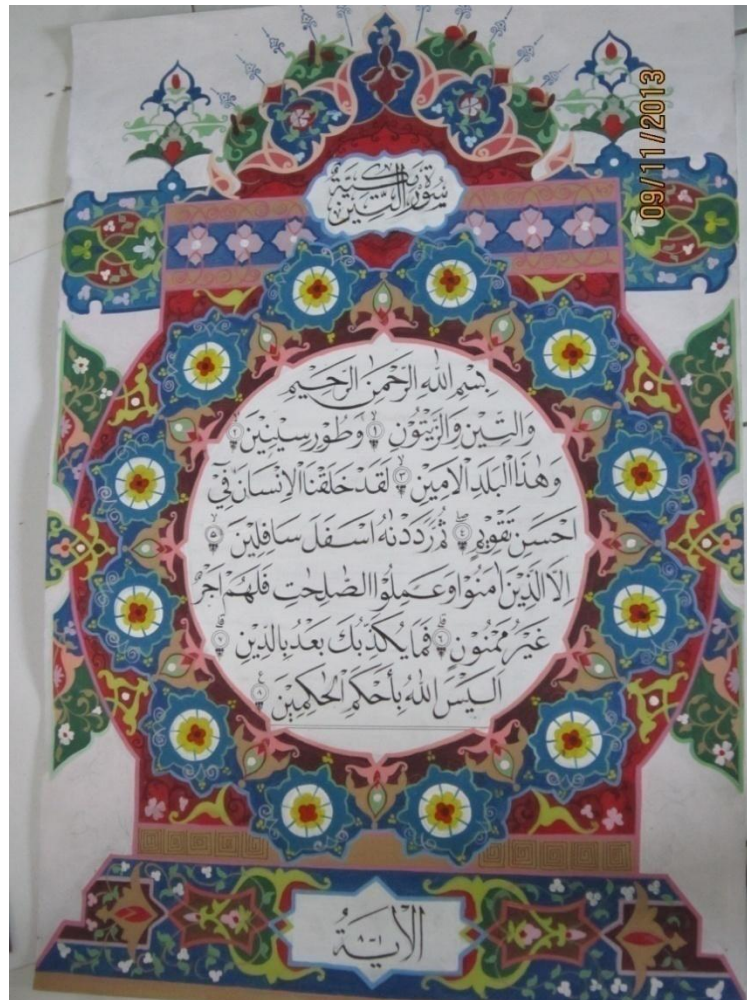 سورة التين مكية
09/11/2013
بِسْمِ اللهِ الرَّحْمٰنِ الرَّحِيْمِ
وَالتِّيْنِ وَالزَّيْتُوْنِ ١ وَطُوْرِ سِيْنِيْنَ ٢
وَهٰذَا الْبَلَدِ الْاَمِيْنِ ٣ لَقَدْ خَلَقْنَا الْاِنْسَانَ فِيْٓ
اَحْسَنِ تَقْوِيْمٍ ٤ ثُمَّ رَدَدْنٰهُ اَسْفَلَ سَافِلِيْنَ ٥
اِلَّا الَّذِيْنَ اٰمَنُوْا وَعَمِلُوا الصّٰلِحٰتِ فَلَهُمْ اَجْرٌ
غَيْرُ مَمْنُوْنٍ ٦ فَمَا يُكَذِّبُكَ بَعْدُ بِالدِّيْنِ ٧
اَلَيْسَ اللهُ بِأَحْكَمِ الْحٰكِمِيْنَ ٨
الْاٰيَةُ
١-٨